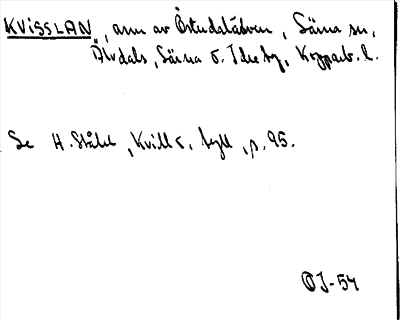 KVISSLAN, arm av Österdalälven, Särna sn,
Älvdals, Särna o. Idre tg, Kopparb. l.
Se H. Ståhl, Kvill o. tyll, p. 95.
OJ-54